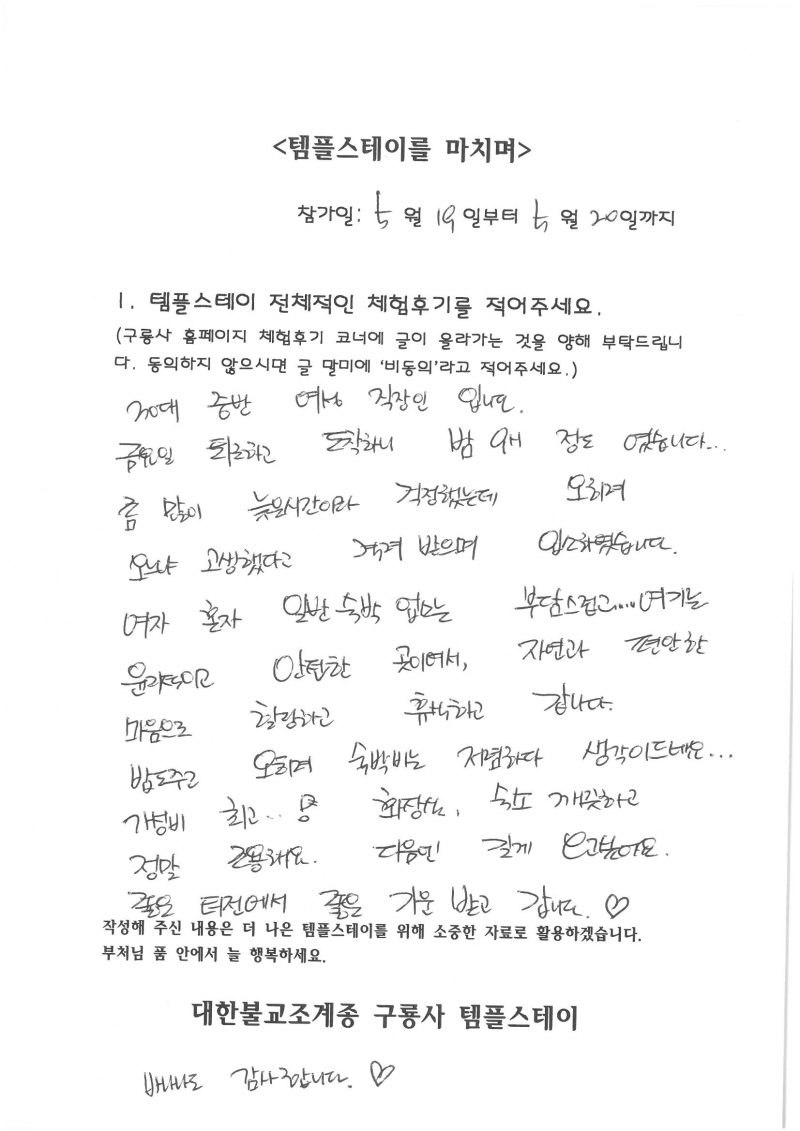 <템플스테이를 마치며>
참가일: 5 월 19 일부터 5 월 20 일까지
1. 템플스테이 전체적인 체험후기를 적어주세요.
(구룡사 홈페이지 체험후기 코너에 글이 올라가는 것을 양해 부탁드립니
다. 동의하지 않으시면 글 말미에 '비동의'라고 적어주세요.)
30대 중반 여성 직장인 입니다.
금요일 퇴근하고 도착하니 밤 9시 정도 였습니다...
좀 많이 늦은시간이라 걱정했는데 오히려
오느냐 고생했다고 격려 받으며 입소하였습니다.
여자 혼자 일반 숙박 업소는 부담스럽고....여기는
안전한 곳이여서, 자연과 편안한
마음으로 힐링하고 휴식하고 갑니다.
밥도주고 오히려 숙박비는 저렴하다 생각이드네요...
가성비 최고.. 화장실, 숙소 깨끗하고
정말 조용해요. 다음엔 길게 오고싶어요.
좋은 터전에서 좋은 기운 받고 갑니다. ♡
작성해 주신 내용은 더 나은 템플스테이를 위해 소중한 자료로 활용하겠습니다.
부처님 품 안에서 늘 행복하세요.
대한불교조계종 구룡사 템플스테이
바나나도 감사합니다. ♡